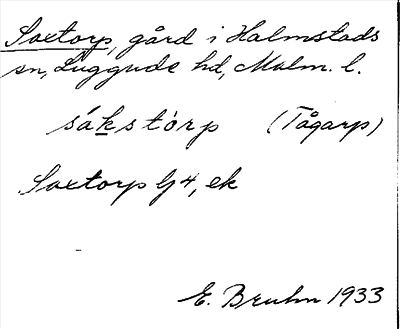 Saxtorp, gård i Halmstads
sn, Luggude hd, Malm. l.
sákstòrp (Tågarp)
Saxtorp Lj 4, ek
E. Bruhn 1933